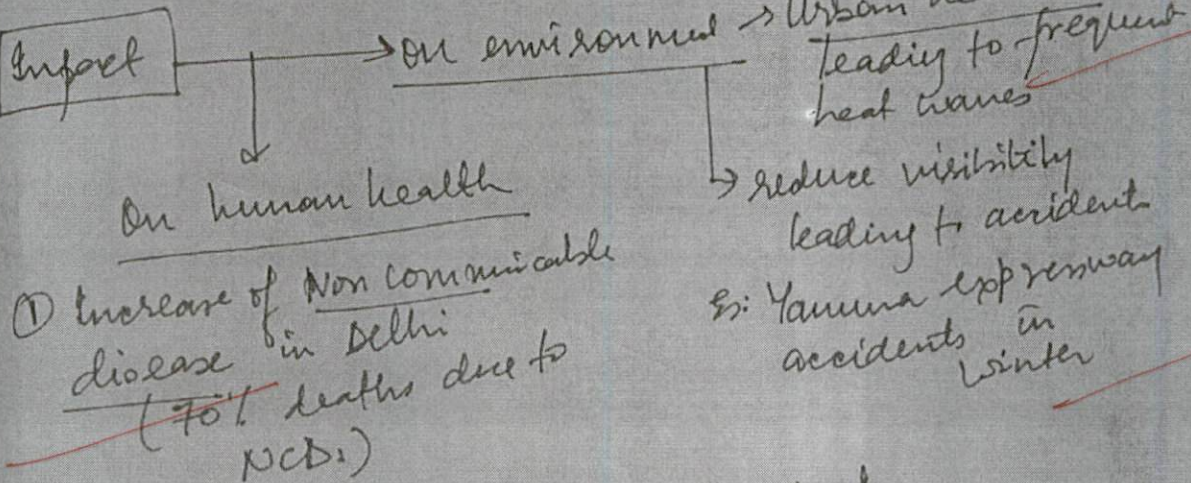 Impact
on environment → Urban
leading to frequent
heat waves
↳ reduce visibility
leading to accident
Eg: Yamuna expressway
accidents in
winter
On human health
① Increase of Non communicable
disease in Delhi
(70% deaths due to
NCDs)